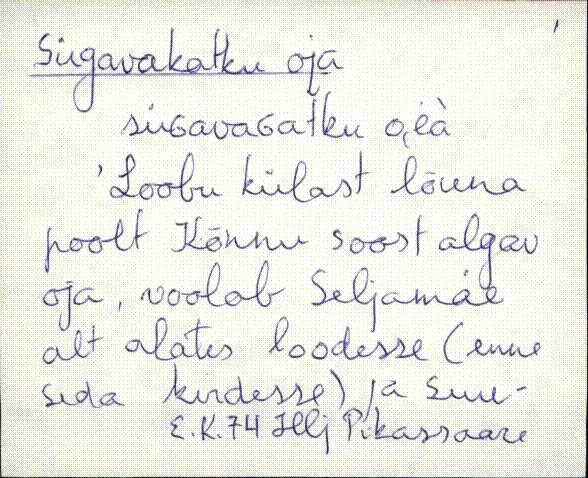 Sügavakatku oja
süɢavaɢatku o̭i̭à
'Loobu külast lõuna
poolt Kõnnu soost algav
oja, voolab Seljamäe
alt alates loodesse (enne
seda kirdesse) ja suu-
E.K.74 Illj Pikassaare